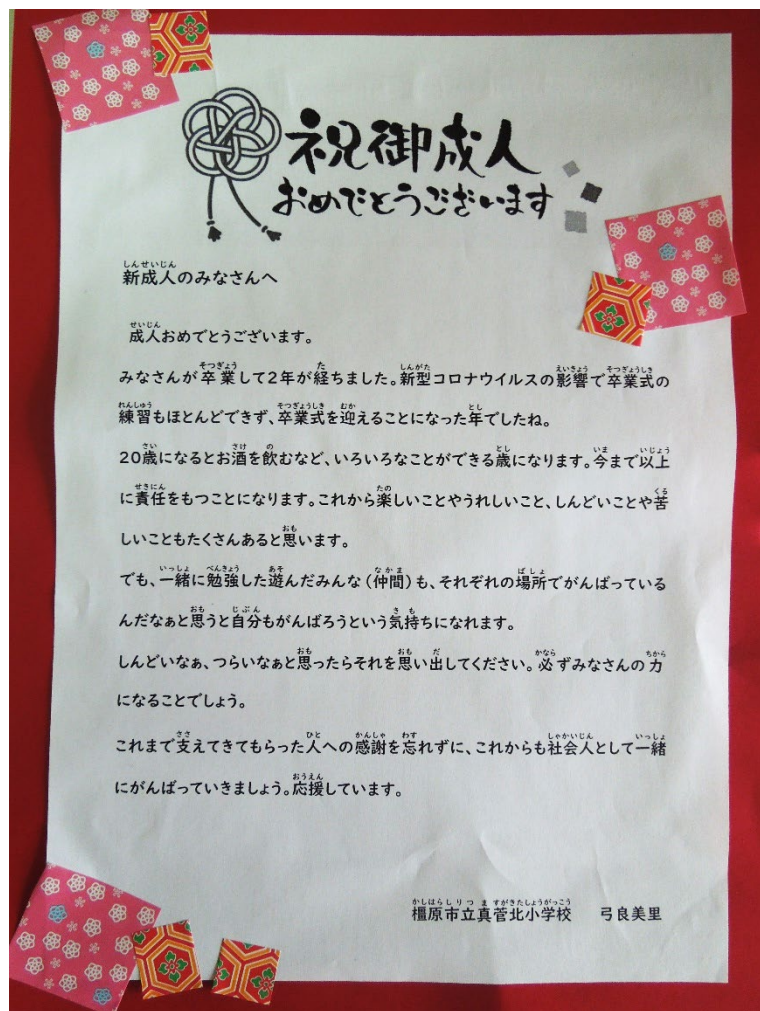 祝御成人
おめでとうございます
新成人のみなさんへ
成人おめでとうございます。
みなさんが卒業して2年が経ちました。新型コロナウイルスの影響で卒業式の
練習もほとんどできず、卒業式を迎えることになった年でしたね。
20歳になるとお酒を飲むなど、いろいろなことができる歳になります。今まで以上
に責任をもつことになります。これから楽しいことやうれしいこと、しんどいことや苦
しいこともたくさんあると思います。
でも、一緒に勉強した遊んだみんな（仲間）も、それぞれの場所でがんばっている
んだなぁと思うと自分もがんばろうという気持ちになれます。
しんどいなぁ、つらいなぁと思ったらそれを思い出してください。必ずみなさんの力
になることでしょう。
これまで支えてきてもらった人への感謝を忘れずに、これからも社会人として一緒
にがんばっていきましょう。応援しています。
橿原市立真菅北小学校　弓良美里